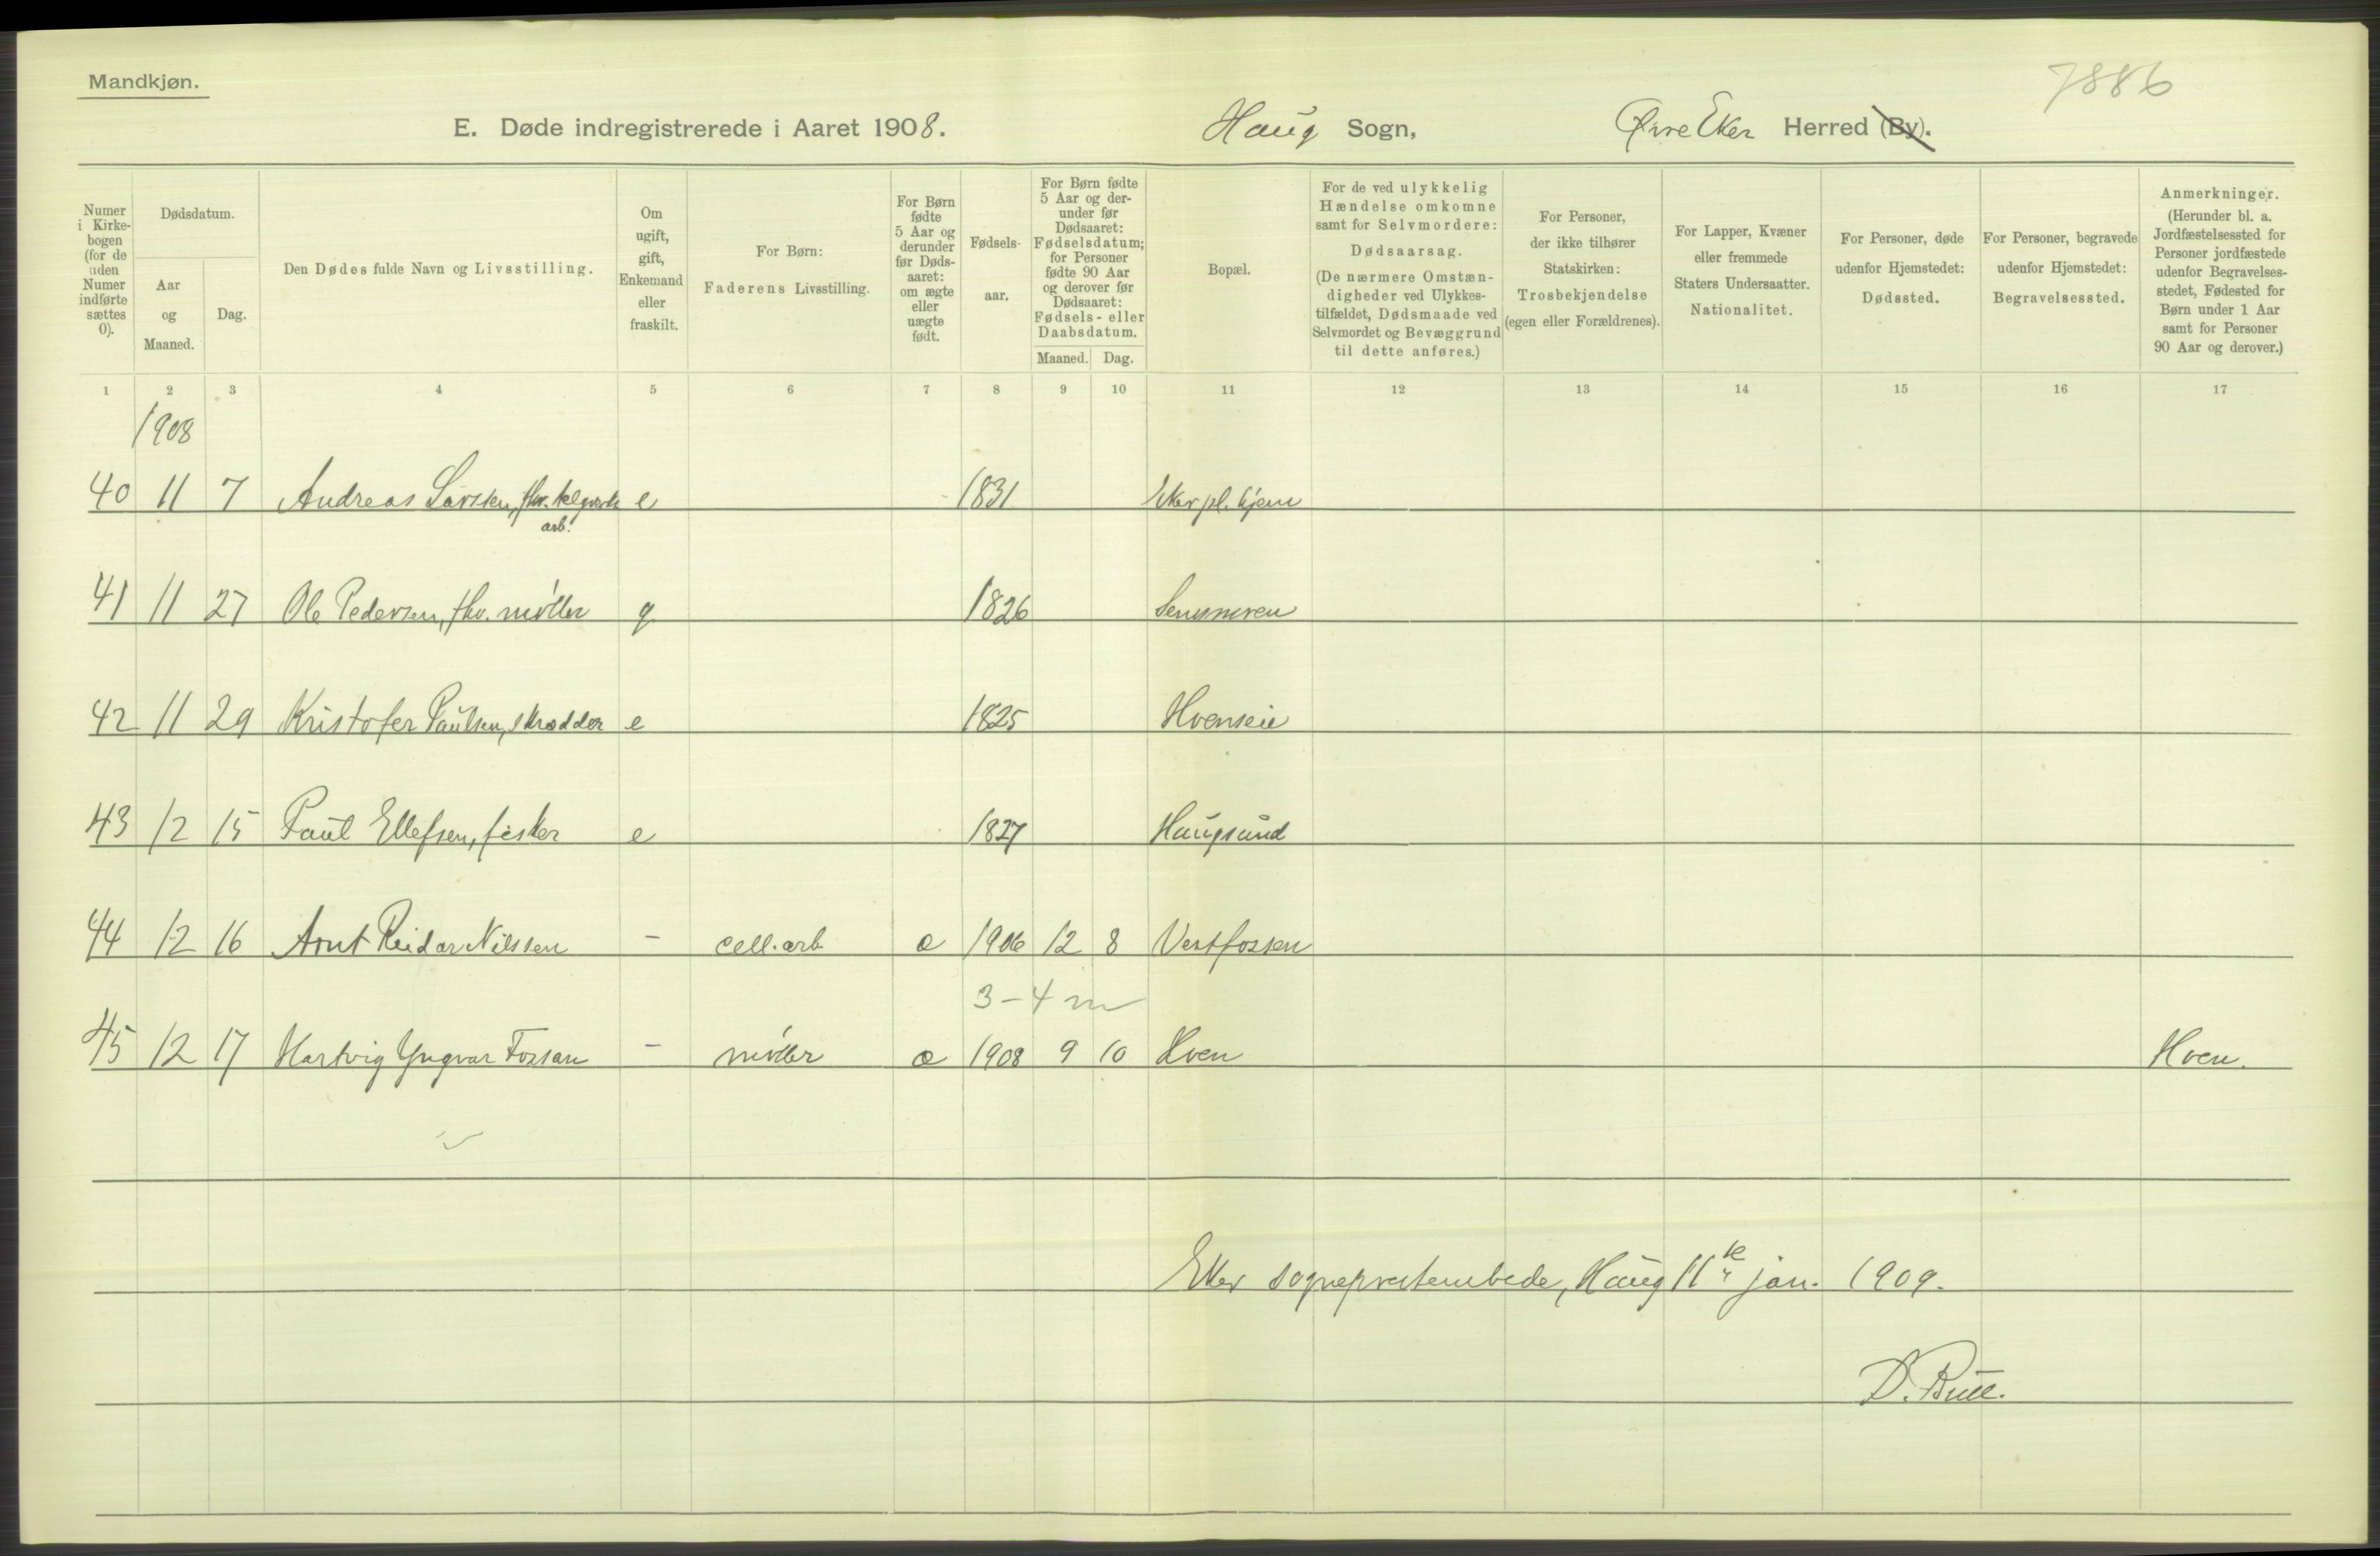 Mandkjøn.
7886
E. Døde indregistrerede i Aaret 1908. Haug Sogn, Øvre Eker Herred (By).
Numer i Kirkebogen (for de uden Numer indførte sættes 0).
Dødsdatum.
Aar og Maaned.
Dag.
Den Dødes fulde Navn og Livsstilling.
Om ugift, gift, Enkemand eller fraskilt.
For Børn: Faderens Livsstilling.
For Børn fødte 5 Aar og derunder før Dødsaaret: om ægte eller uægte født.
Fødselsaar.
For Børn fødte 5 Aar og derunder før Dødsaaret: Fødselsdatum; for Personer fødte 90 Aar og derover før Dødsaaret: Fødsels- eller Daabsdatum.
Maaned. Dag.
Bopæl.
For de ved ulykkelig Hændelse omkomne samt for Selvmordere: Dødsaarsag. (De nærmere Omstændigheder ved Ulykkestilfældet, Dødsmaade ved Selvmordet og Bevæggrund til dette anføres.)
For Personer, der ikke tilhører Statskirken: Trosbekjendelse (egen eller Forældrenes).
For Lapper, Kvæner eller fremmede Staters Undersaatter. Nationalitet.
For Personer, døde udenfor Hjemstedet: Dødssted.
For Personer, begravede udenfor Hjemstedet: Begravelsessted.
Anmerkninger. (Herunder bl. a. Jordfæstelsessted for Personer jordfæstede udenfor Begravelsesstedet, Fødested for Børn under 1 Aar samt for Personer 90 Aar og derover.)
1 2 3 4 5 6 7 8 9 10 11 12 13 14 15 16 17
1908
40 11 7 Andreas Larsen, fhv. e 1831 Eker pl. hjem
arb.
41 11 27 Ole Pedersen, fhv. møller g 1826
42 11 29 Kristofer Paulsen, skrædder e 1825 Hvenseie
43 12 15 Paul Ellefsen, fisker e 1827 Haugsund
44 12 16 Arnt Reidar Nilssen - cell.arb æ 1906 12 8 Vestfossen
3-4 m
45 12 17 Hartvig Yngvar Fossan - møller æ 1908 9 10 Hven Hven.
Eker sogneprestembede, Haug 11te jan. 1909.
D. Bull.